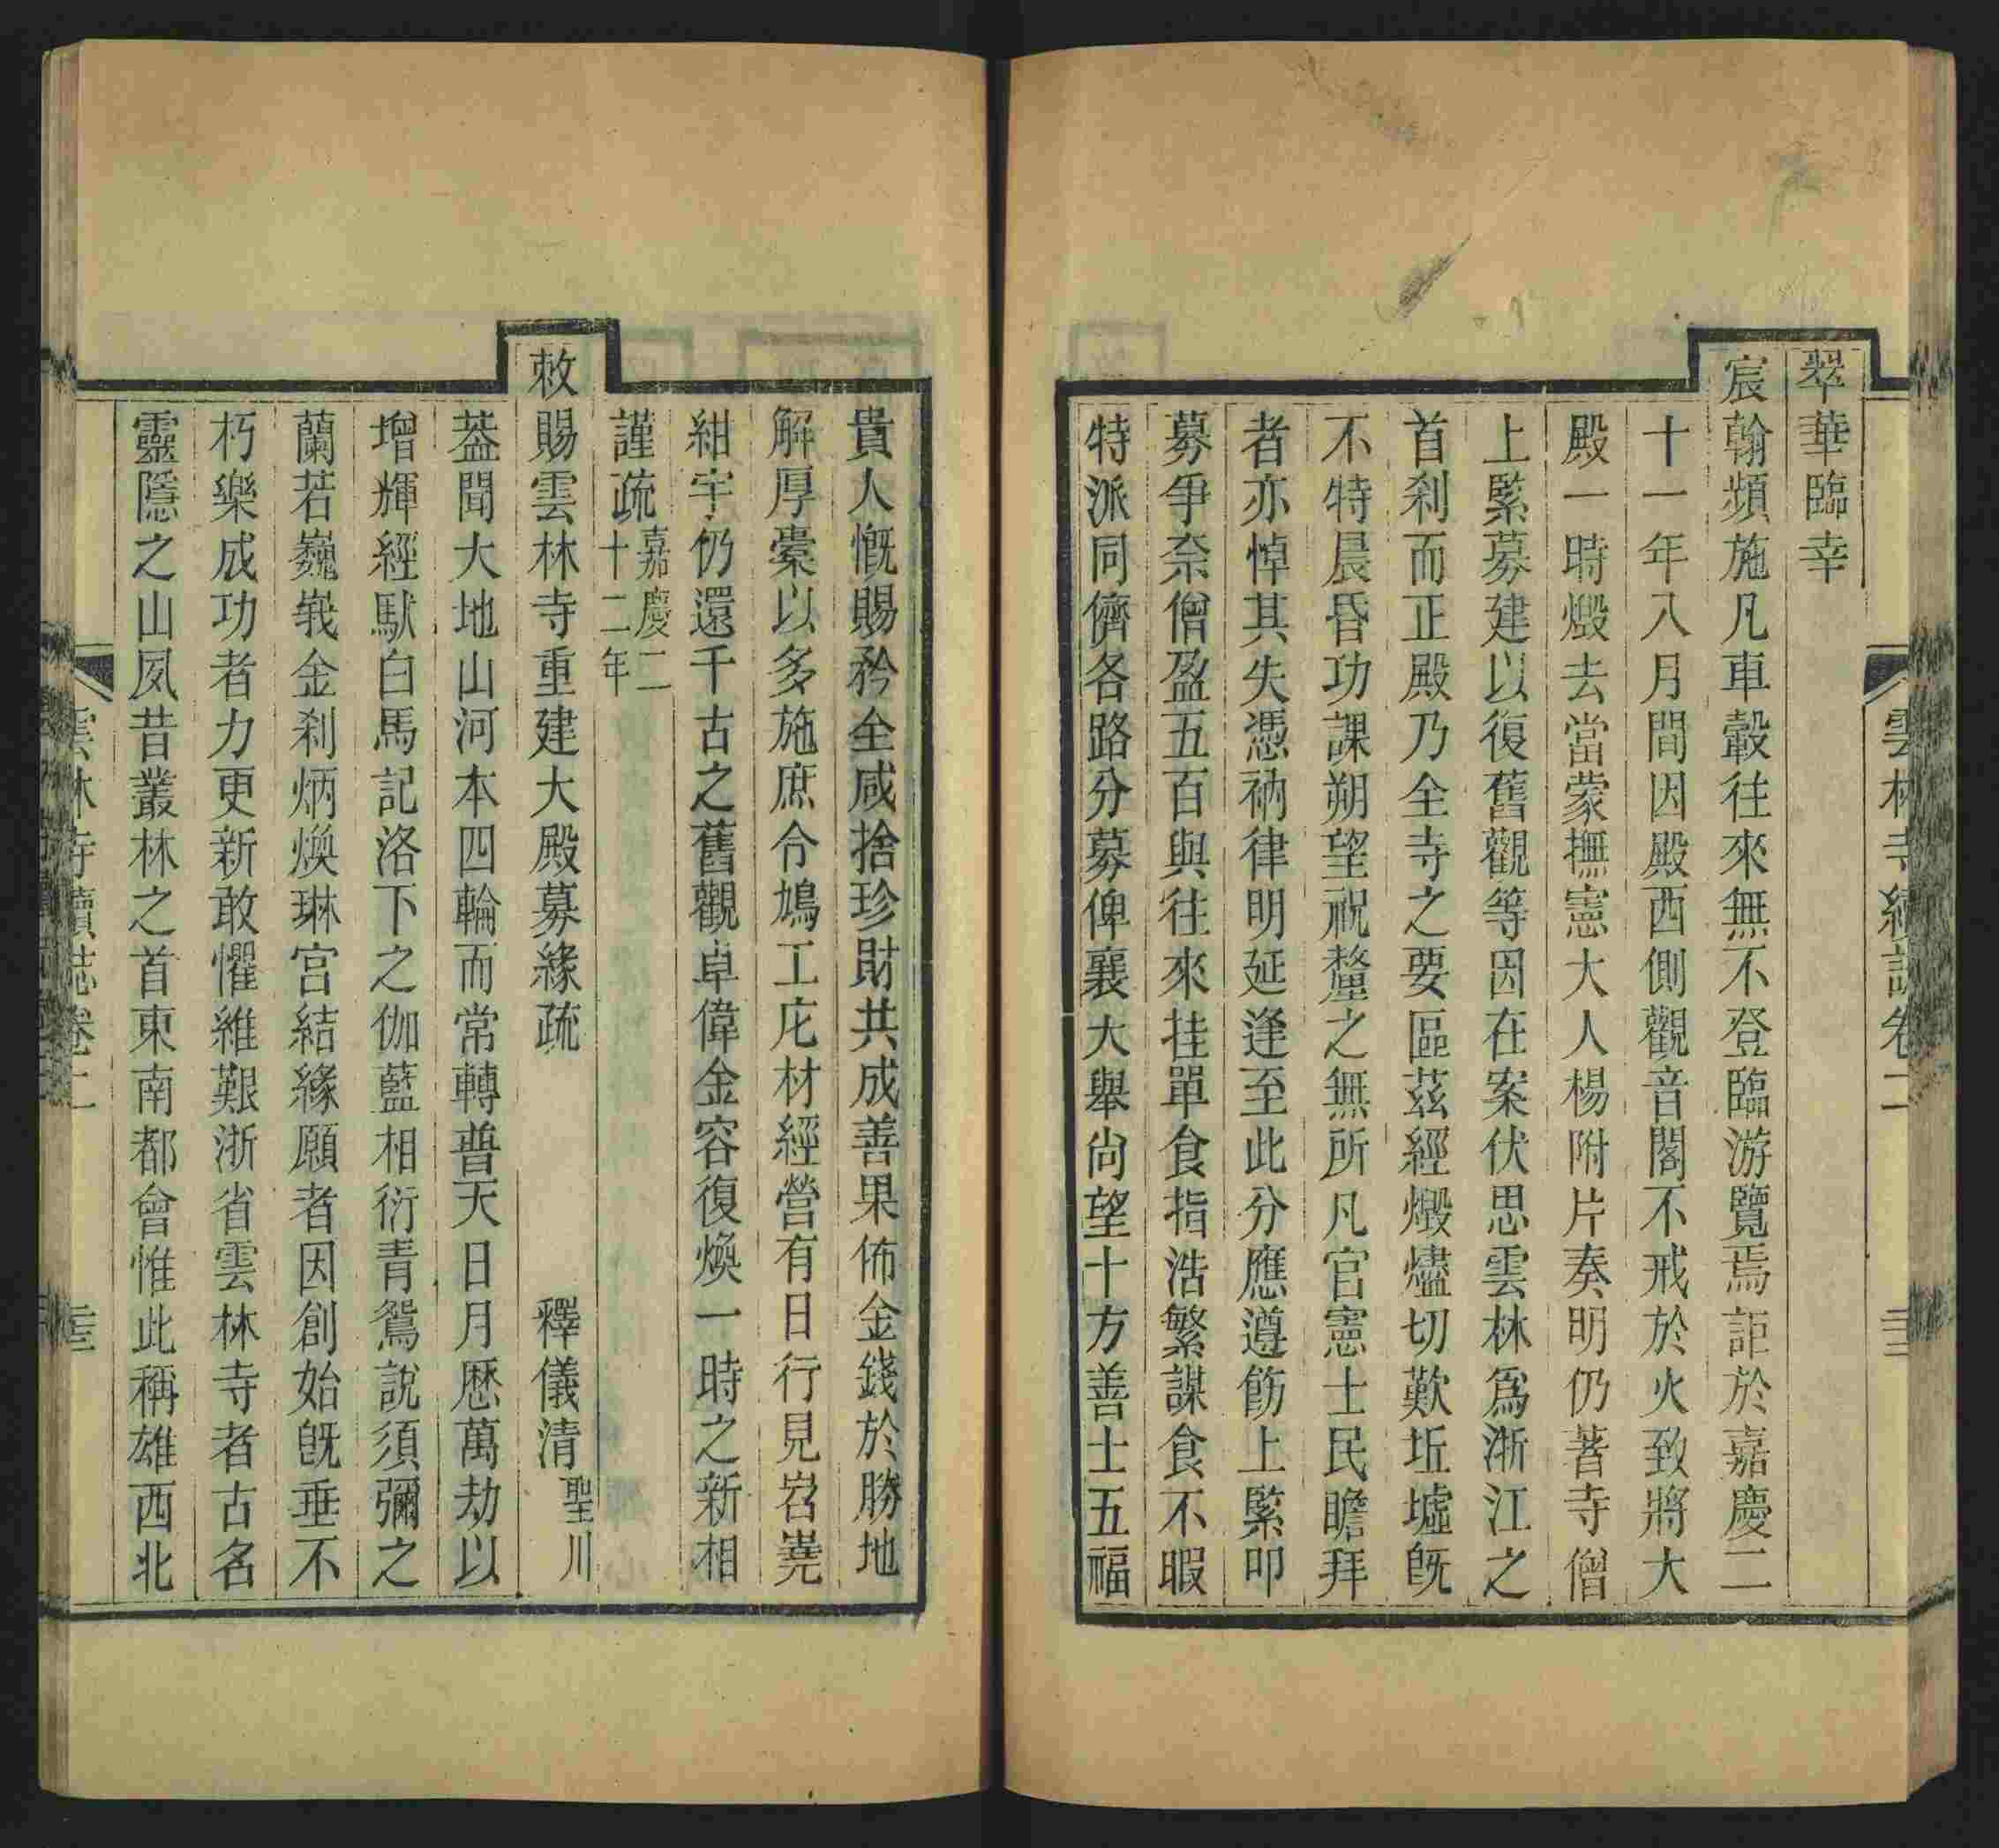 翠華臨幸
宸翰頻施凡車轂往來無不登臨游覽焉詎於嘉慶二
十一年八月間因殿西側觀音閣不戒於火致將大
殿一時燬去當蒙撫憲大人楊附片奏明仍著寺僧
上緊募建以復舊觀等因在案伏思雲林爲浙江之
首刹而正殿乃全寺之要區茲經燬燼切歎坵墟旣
不特晨昏功課朔望祝釐之無所凡官憲士民瞻拜
者亦悼其失憑衲律明延逢至此分應遵飭上緊叩
募爭奈僧盈五百與往來挂單食指浩繁謀食不暇
特派同儕各路分募俾襄大舉尙望十方善士五福
雲林寺續誌卷二
貴人慨賜矜全咸捨珍財共成善果佈金錢於勝地
解厚橐以多施庶令鳩工庀材經營有日行見岧嶤
紺宇仍還千古之舊觀卓偉金容復煥一時之新相
謹疏嘉慶二十二年
敕賜雲林寺重建大殿募緣疏 釋儀清聖川
葢聞大地山河本四輪而常轉普天日月歷萬劫以
增輝經馱白馬記洛下之伽藍相衍青鴛說須彌之
蘭若巍峩金刹炳煥琳宮結緣願者因創始旣垂不
朽樂成功者力更新敢懼維艱浙省雲林寺者古名
靈隱之山夙昔叢林之首東南都會惟此稱雄西北
雲林寺續誌卷二